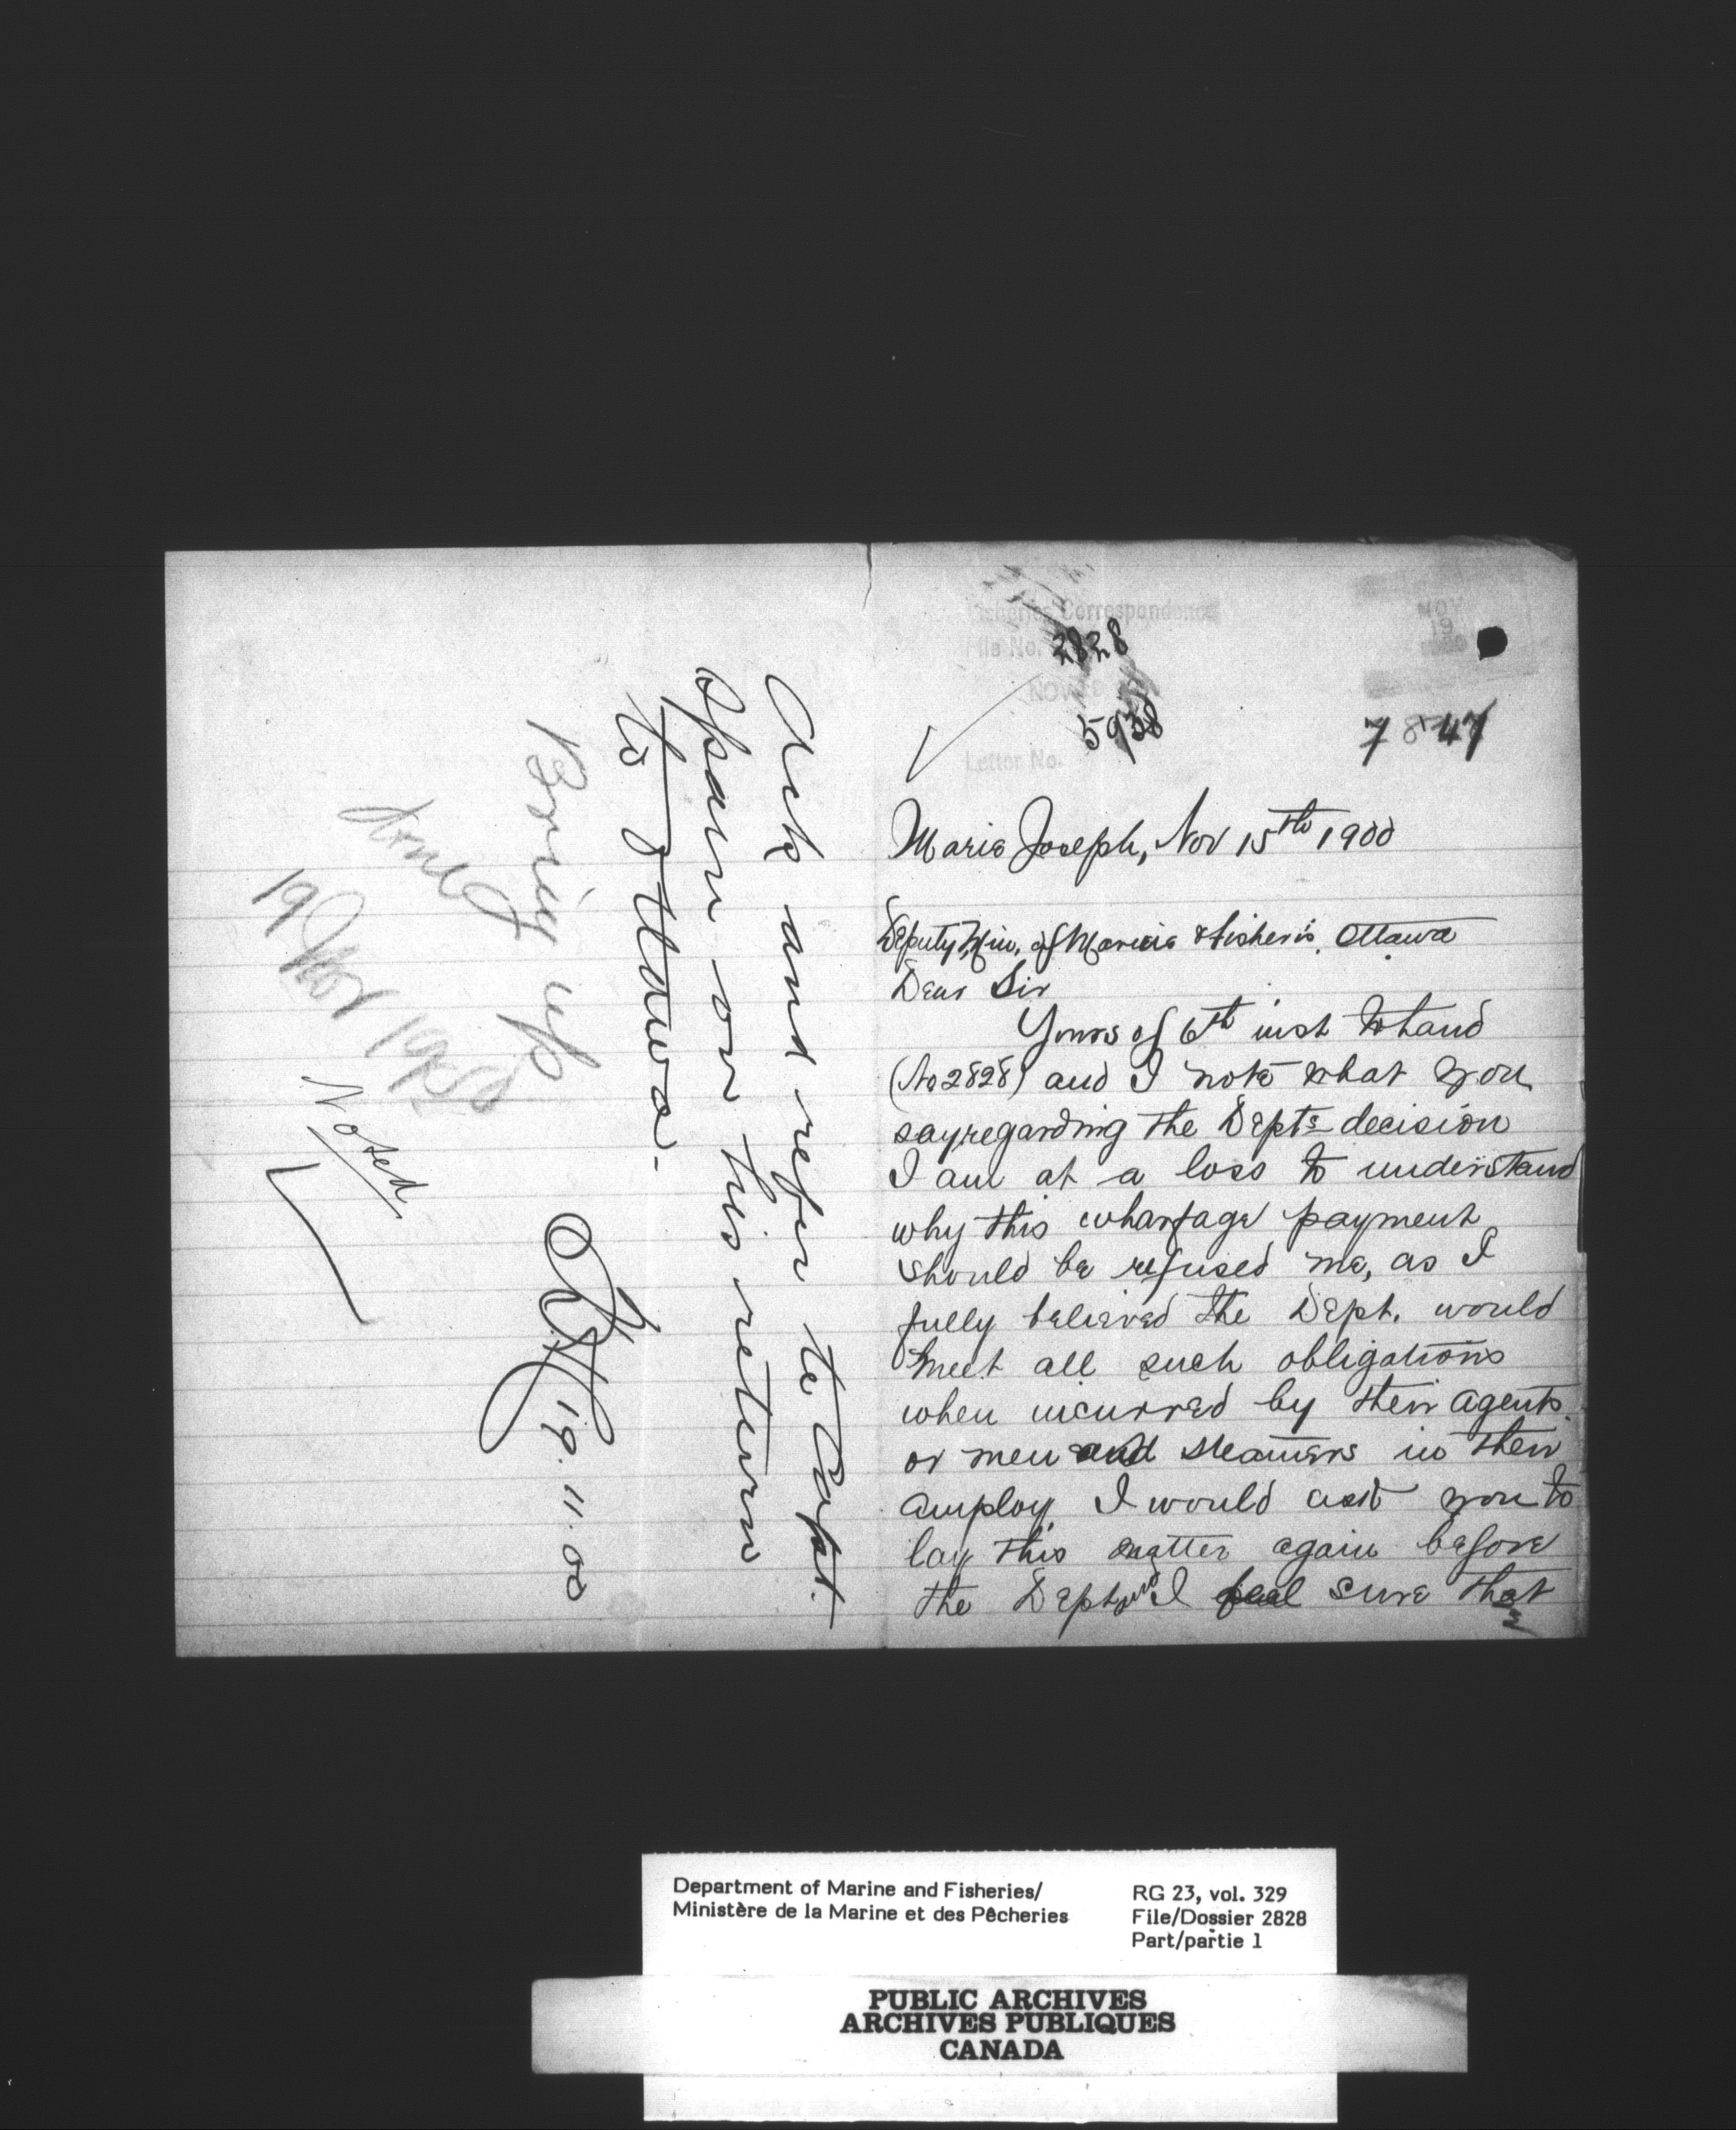 Ack and refer to Capt.
Spain on his return
to Ottawa.
19.11.00
Bring up
19 Nov 1900
Noted
Fisheries Correspondence
File No. 2828
NOV
5938
Letter No.
NOV
19
7847
Marie Joseph, Nov 15th 1900
Deputy Min. of Marine & Fisheris, Ottawa
Dear Sir
Yours of 6th inst to hand
(No 2828) and I note what you
say regarding the Depts decision
I am at a loss to understand
why this wharfage payment
should be refused me, as I
fully believed the Dept. would
meet all such obligations
when incurred by their agents
or men and steamers in their
employ I would ask you to
lay this matter again before
the Dept and I feel sure that
Department of Marine and Fisheries/
Ministère de la Marine et des Pêcheries
RG 23, vol. 329
File/Dossier 2828
Part/partie 1
PUBLIC ARCHIVES
ARCHIVES PUBLIQUES
CANADA